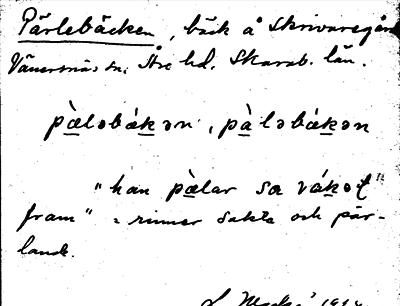 Pärlebäcken, bäck å Skrivaregård
Vänersnäs sn. Åse hd. Skarab. län.
pàləbákən, pàləbákən
"han pàlar sa vákət
fram" = rinner sakta och pär-
lande.